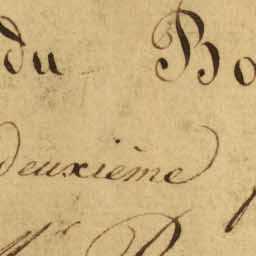 du Bo
deuxième
Mr